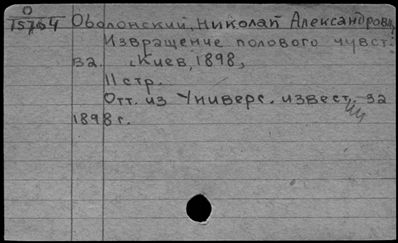 О
15764 Оболонский, Николай Александрович
Извращение полового чувст-
ва. Киев, 1898,
11 стр.
Отт. из Универс. извест. за
1898 г.